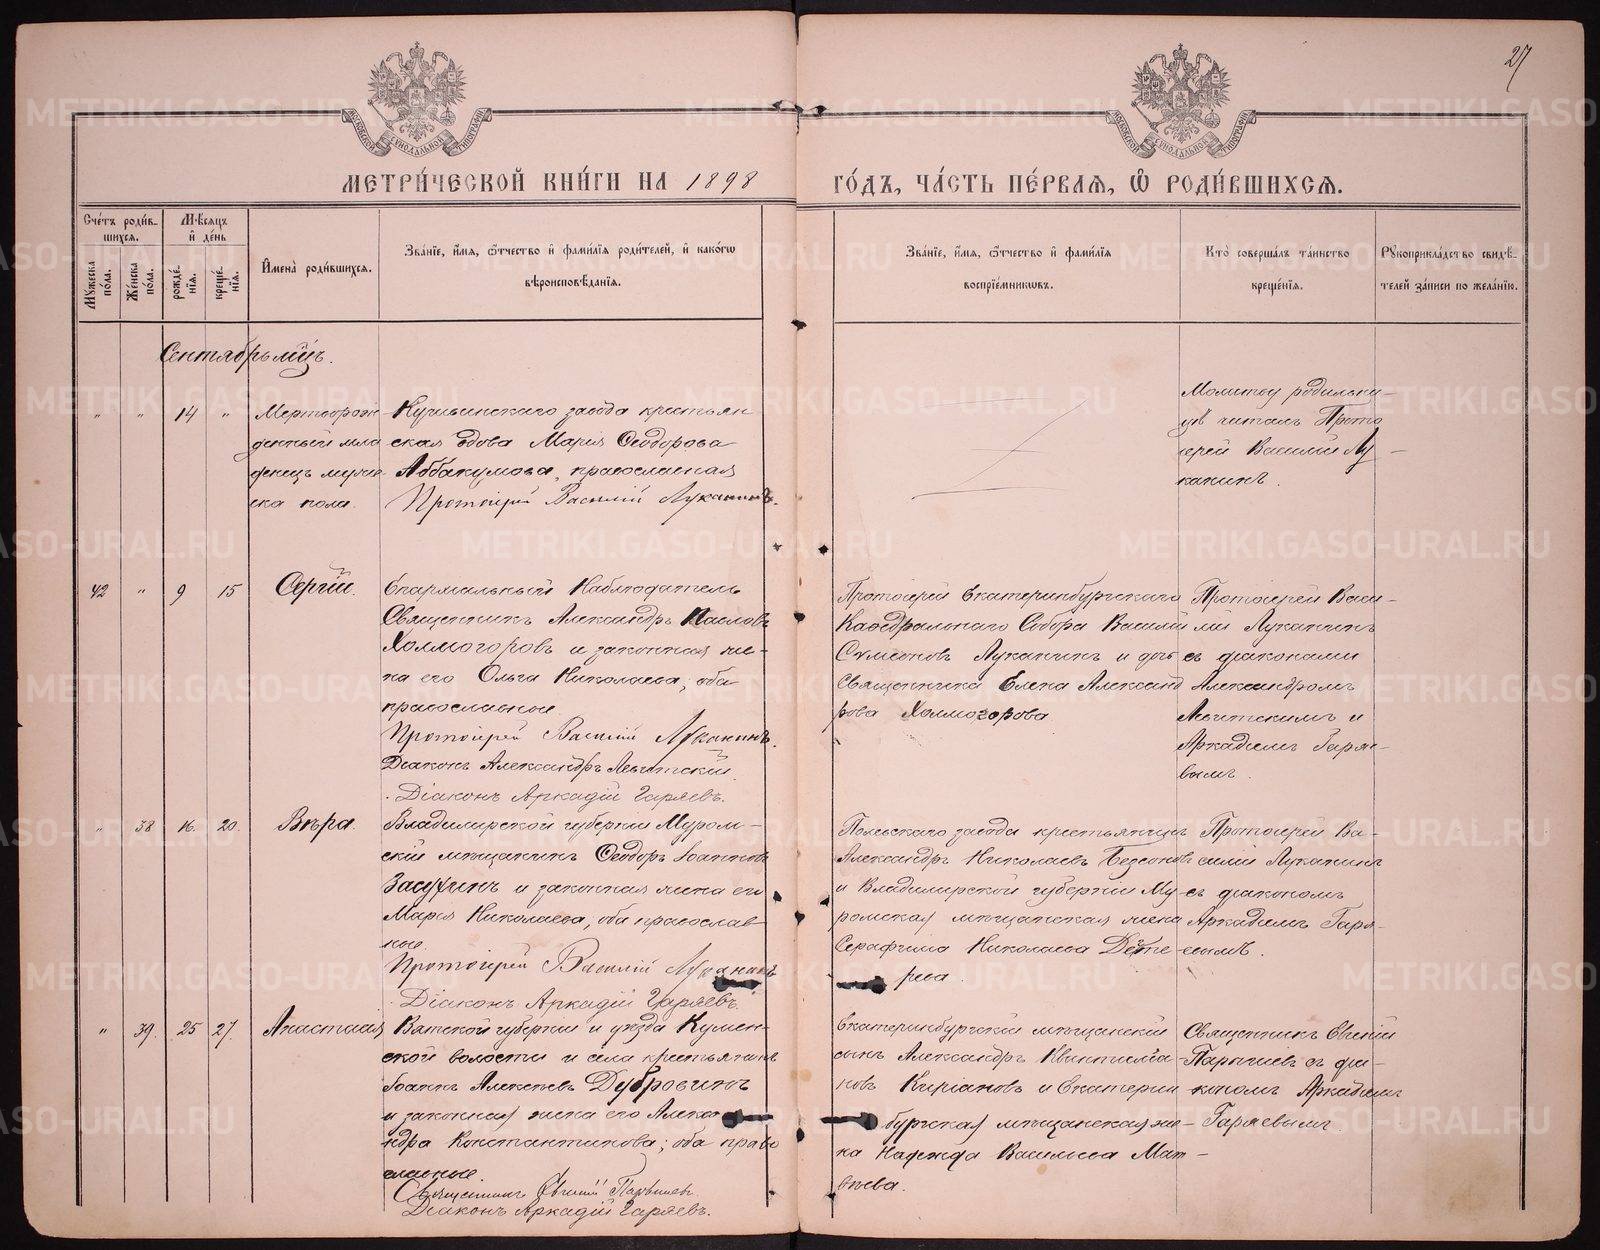 27
МЕТРИЧЕСКОЙ КНИГИ НА 1898
ГОДЪ, ЧАСТЬ ПЕРВАЯ, Ѡ РОДИВШИХСЯ.
Счетъ родив-
шихся.
Мужеска пола.
Женска пола.
Мѣсяцъ
и день
рождѐнія.
крещенія.
Имена родившихся.
Званіе, имя, отчество и фамилія родителей, и какого
вѣроисповѣданія.
Званіе, имя, отчество и фамилія
воспріемниковъ.
Кто совершалъ таинство
крещенія.
Рукоприкладство свидѣ-
телей записи по желанію.
Сентябрь мцъ.
" " 14 "
Мертворож
денный мла
денецъ муже
ска пола.
завода крестьян
ская вдова Марія Ѳеодорова
Аввакумова, православная
Протоіерей Василій Луканинъ.
Молитву родильни-
цѣ читалъ Прото
іерей Василій Лу-
канинъ.
42 " 9 15
Сергій.
Епархіальный Наблюдатель
Священникъ Александръ Павловъ
Холмогоровъ и законная же-
на его Ольга Николаева; оба
православные.
Протоіерей Василій Луканинъ.
Діаконъ Александръ
Діаконъ Аркадій Гаряевъ.
Протоіерей Екатеринбургскаго
Каѳедральнаго Собора Василій
Симеоновъ Луканинъ и дочь
Священника Елена Александ
рова Холмогорова
Протоіерей Васи-
лій Луканинъ
съ діаконами
Александромъ
и
Аркадіемъ Гаря-
вымъ.
" 38 16. 20.
Вѣра.
Владимірской губерніи Муром-
скій мѣщанинъ Ѳеодоръ Іоанновъ
Засухинъ и законная жена его
Марія Николаева, оба православ
ные.
Протоіерей Василій Луканинъ
Діаконъ Аркадій Гаряевъ.
завода крестьянинъ
Александръ Николаевъ Безсоновъ
и Владимірской губерніи Му-
ромская мѣщанская жена
Серафима Николаева
рева.
Протоіерей Ва-
силій Луканинъ
съ діакономъ
Аркадіемъ Гаря-
евымъ.
" 39. 25 27.
Анастасія
Вятской губерніи и уѣзда Кумен-
ской волости и села крестьянинъ
Іоаннъ Алексѣевъ Дубровинъ
и законная жена его Алекса
ндра Константинова; оба право
славные.
Священникъ Евгеній
Діаконъ Аркадій Гаряевъ.
Екатеринбургскій мѣщанскій
сынъ Александръ Квинтиліа-
новъ Киріановъ и Екатерин
бургская мѣщанская же-
на Надежда Васильева Мат-
вѣева.
Священникъ Евгеній
съ діа-
кономъ Аркадіемъ
Гаряевымъ.
METRIKI.GASO-URAL.RU